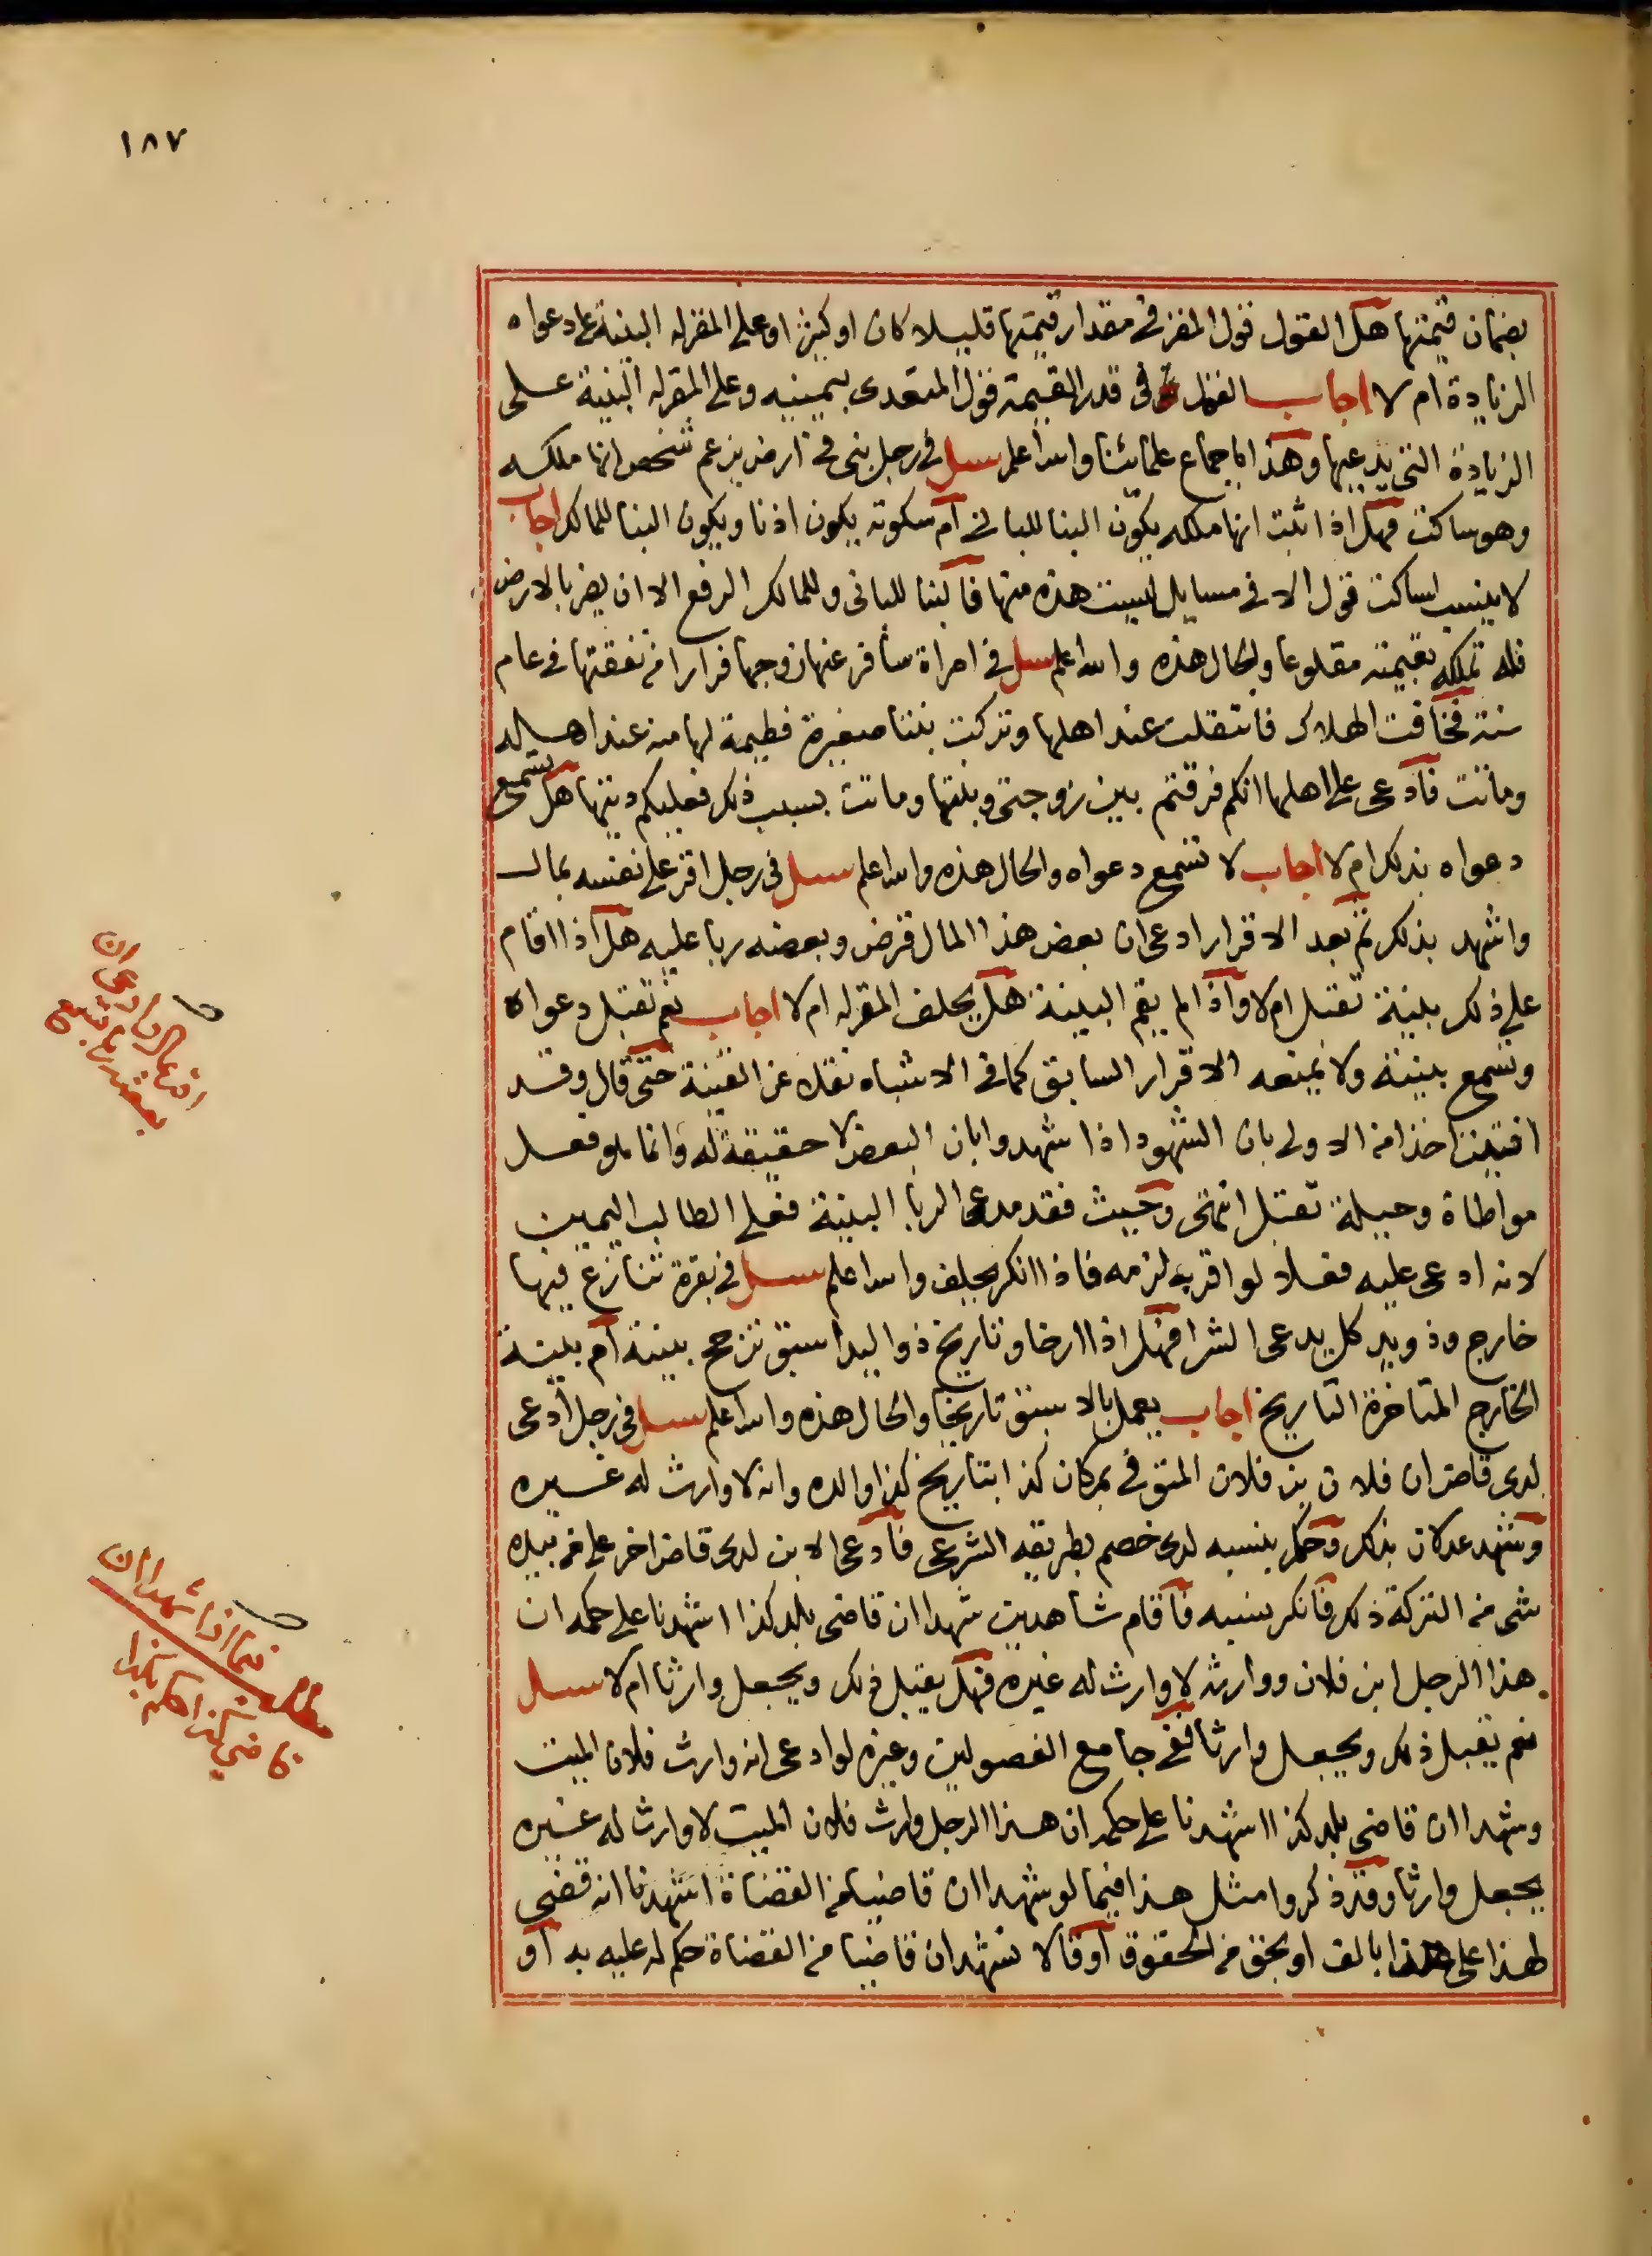 ١٨٧
بضمان قيمتها هل القول قول المقر في مقدار قيمتها قليلا كان او كثيرا وعلى المقر له البينة على دعواه
الزيادة ام لا اجاب القول في قدر القيمة قول المتعدى بيمينه وعلى المقر له البينة على
الزيادة التي يدعيها وهذا باجماع علمائنا والله اعلم سيل في رجل بنى في ارض يزعم شخص انها ملكه
وهو ساكت فهل اذا ثبت انها ملكه يكون البنا للباني ام سكوته يكون اذنا ويكون البنا للمالك اجاب
لا ينسب لساكت قول الا في مسايل ليست هذه منها فالبنا للباني وللمالك الرفع الا ان يضر بالارض
فله تملكه بقيمته مقلوعا والحال هذه والله اعلم سيل في امراة سافر عنها زوجها فرارا من نفقتها في عام
سنة فخافت الهلاك فانتقلت عند اهلها وتركت بنتا صغيرة فطيمة لها منه عند اهاله
وماتت فادعى على اهلها انكم فرقتم بين زوجتي وبنتها وماتت بسبب ذلك فعليكم ديتها هل تسمع
دعواه بذلك ام لا اجاب لا تسمع دعواه والحال هذه والله اعلم سيل في رجل اقر على نفسه بمال
واشهد بذلك ثم بعد الاقرار ادعى ان بعض هذا المال قرض وبعضه ربا عليه هل اذا اقام
على ذلك بينة تقبل ام لا واذا لم يقم البينة هل يحلف المقر له ام لا اجاب نعم تقبل دعواه
وتسمع بينته ولا يمنعه الاقرار السابق كما في الاشباه نقلا عن القنية حتى قال وقد
افتيت اخذا من الاولى بان الشهود اذا شهدوا بان البعض لا حقيقة له وانما هو فعل
مواطاة وحيلة تقبل انتهى وحيث فقد مدعى الربا البينة فعلى الطالب اليمين
لانه ادعى عليه فعلا لو اقر به لزمه فاذا انكر يحلف والله اعلم سيل في بقرة تنازع فيها
خارج وذو يد كل يدعى الشرا فهل اذا ارخا وتاريخ ذو اليد اسبق ترجح بينته ام بينة
الخارج المتاخرة التاريخ اجاب يعمل بالاسبق تاريخا والحال هذه والله اعلم سيل في رجل ادعى
لدى قاض ان فلان بن فلان المتوفى بمكان كذا بتاريخ كذا والده وانه لا وارث له غيره
وشهد عدلان بذلك وحكم بنسبه لدى خصم بطريقه الشرعى فادعى الابن لدى قاض اخر على من بيده
شى من التركة ذلك فانكر نسبه فاقام شاهدين شهدا ان قاضى بلد كذا اشهدنا على حكمه ان
هذا الرجل ابن فلان ووارثه لا وارث له غيره فهل يقبل ذلك ويجعل وارثا ام لا سيل
نعم يقبل ذلك ويجعل وارثا ففي جامع الفصولين وغيره لو ادعى انه وارث فلان الميت
وشهدا ان قاضى بلد كذا اشهدنا على حكمه ان هذا الرجل وارث فلان الميت لا وارث له غيره
يجعل وارثا وقد ذكروا مثل هذا فيما لو شهدا ان قاضيا من القضاة اشهدنا انه قضى
لهذا على هذا بالف او بحق من الحقوق او قالا نشهد ان قاضيا من القضاة حكم له عليه به او
اقر بمال وادعى ان
بعضه ربا تسمع
مطلب فيما اذا شهدا ان
قاضي كذا حكم بكذا